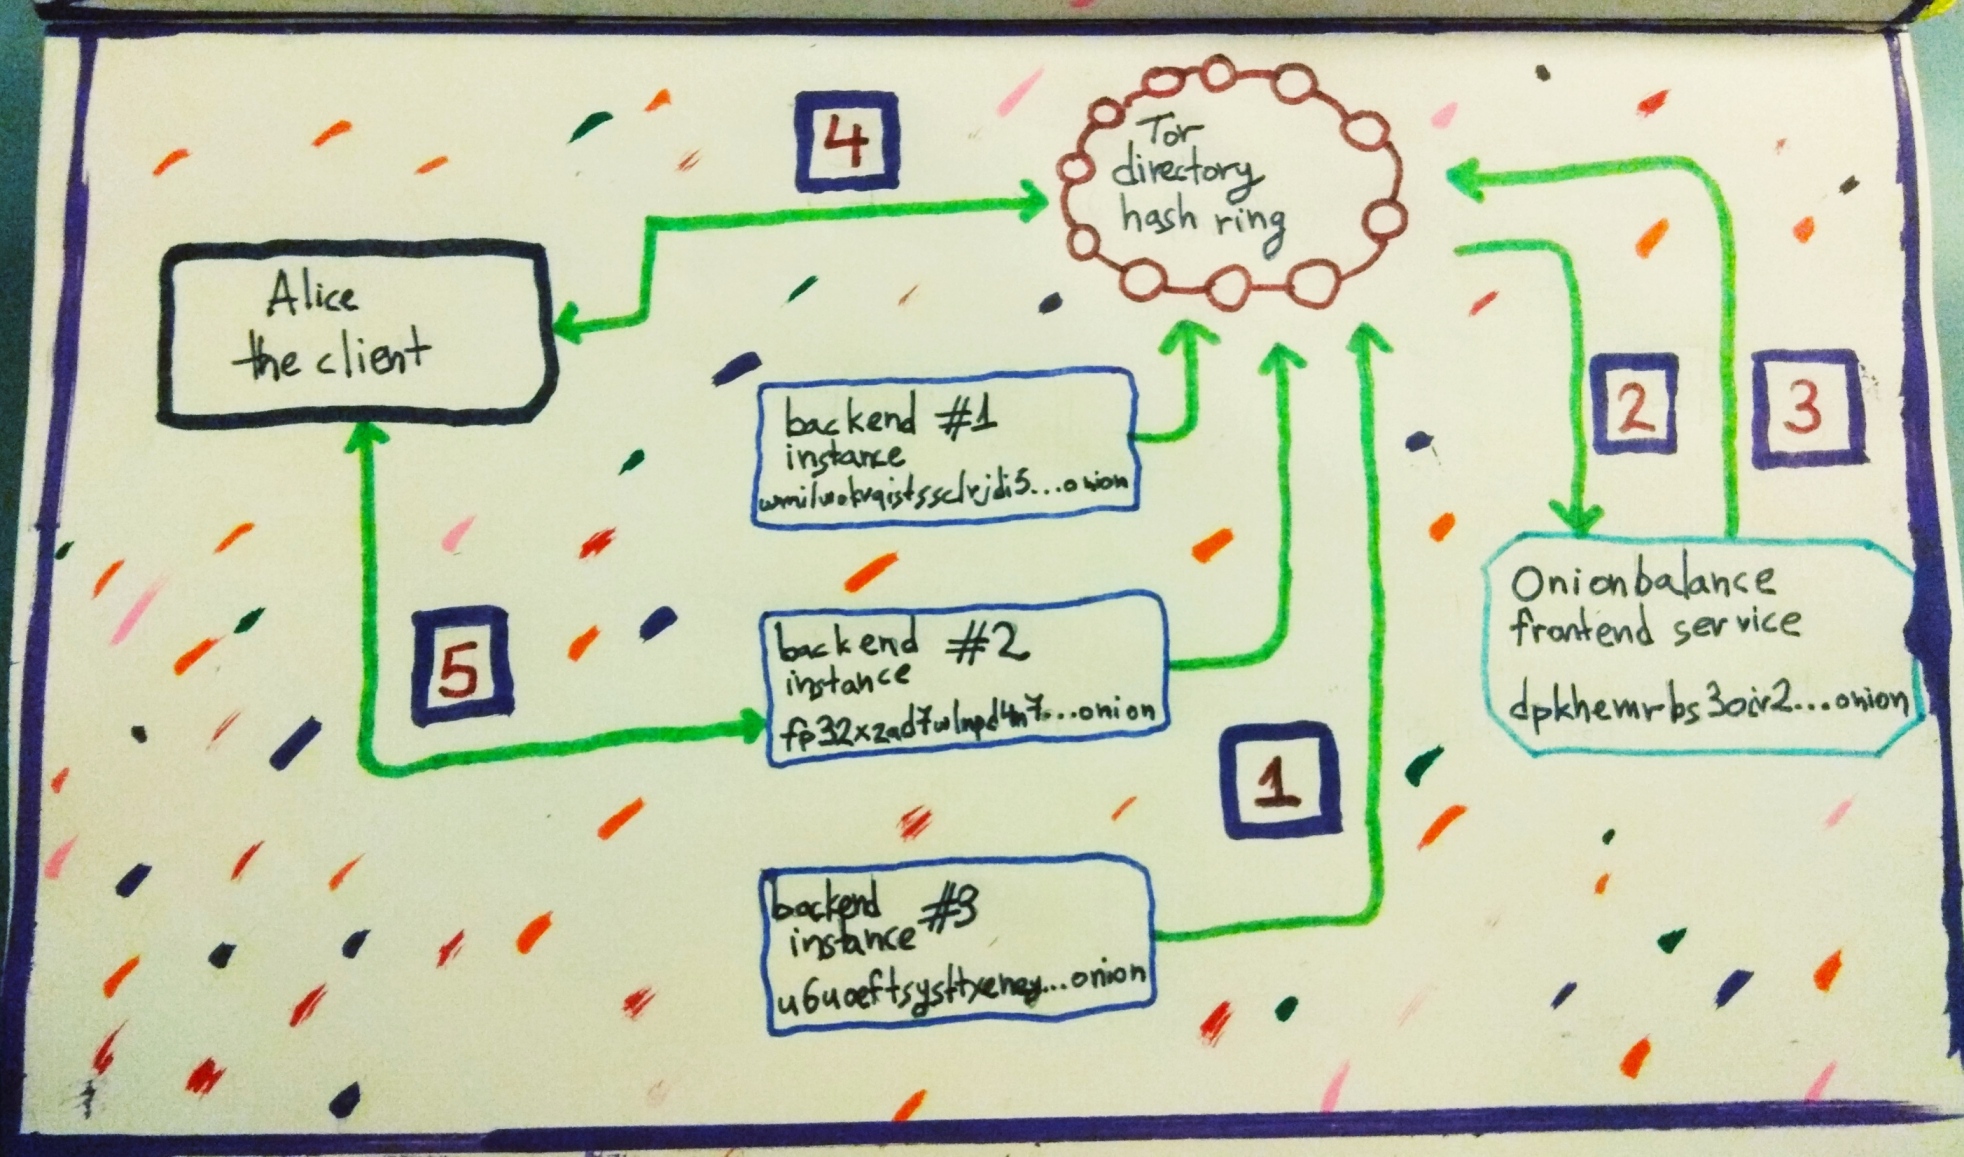 4
Tor
directory
hash ring
Alice
the client
2
3
backend #1
instance
Onionbalance
frontend service
dpkhemrbs3oiv2...onion
5
backend #2
instance
fp32xzad7wlnpd4n7...onion
1
backend #3
instance
u6uoeftsysttxeney...onion